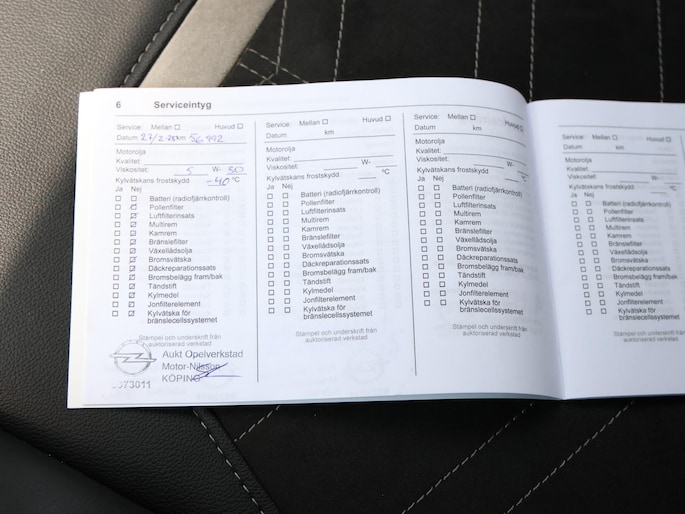 6 Serviceintyg
Service: Mellan ☐ Huvud ☐
Datum 27/2 km 56 992
Motorolja
Kvalitet:
Viskositet: 5 W- 30
Kylvätskans frostskydd -40 °C
Ja Nej
Batteri (radiofjärrkontroll)
Pollenfilter
Luftfilterinsats
Multirem
Kamrem
Bränslefilter
Växellådsolja
Bromsvätska
Däckreparationssats
Bromsbelägg fram/bak
Tändstift
Kylmedel
Jonfilterelement
Kylvätska för
bränslecellssystemet
Stämpel och underskrift från
auktoriserad verkstad
Aukt Opelverkstad
Motor-Nilsson
KÖPING
Service: Mellan ☐ Huvud ☐
Datum km
Motorolja
Kvalitet:
Viskositet: W-
Kylvätskans frostskydd °C
Ja Nej
Batteri (radiofjärrkontroll)
Pollenfilter
Luftfilterinsats
Multirem
Kamrem
Bränslefilter
Växellådsolja
Bromsvätska
Däckreparationssats
Bromsbelägg fram/bak
Tändstift
Kylmedel
Jonfilterelement
Kylvätska för
bränslecellssystemet
Stämpel och underskrift från
auktoriserad verkstad
Service: Mellan ☐ Huvud ☐
Datum km
Motorolja
Kvalitet:
Viskositet: W-
Kylvätskans frostskydd °C
Ja Nej
Batteri (radiofjärrkontroll)
Pollenfilter
Luftfilterinsats
Multirem
Kamrem
Bränslefilter
Växellådsolja
Bromsvätska
Däckreparationssats
Bromsbelägg fram/bak
Tändstift
Kylmedel
Jonfilterelement
Kylvätska för
bränslecellssystemet
Stämpel och underskrift från
auktoriserad verkstad
Service: Mellan ☐ Huvud ☐
Datum km
Motorolja
Kvalitet:
Viskositet: W-
Kylvätskans frostskydd °C
Ja Nej
Batteri (radiofjärrkontroll)
Pollenfilter
Luftfilterinsats
Multirem
Kamrem
Bränslefilter
Växellådsolja
Bromsvätska
Däckreparationssats
Bromsbelägg fram/bak
Tändstift
Kylmedel
Jonfilterelement
Kylvätska för
bränslecellssystemet
Stämpel och underskrift från
auktoriserad verkstad